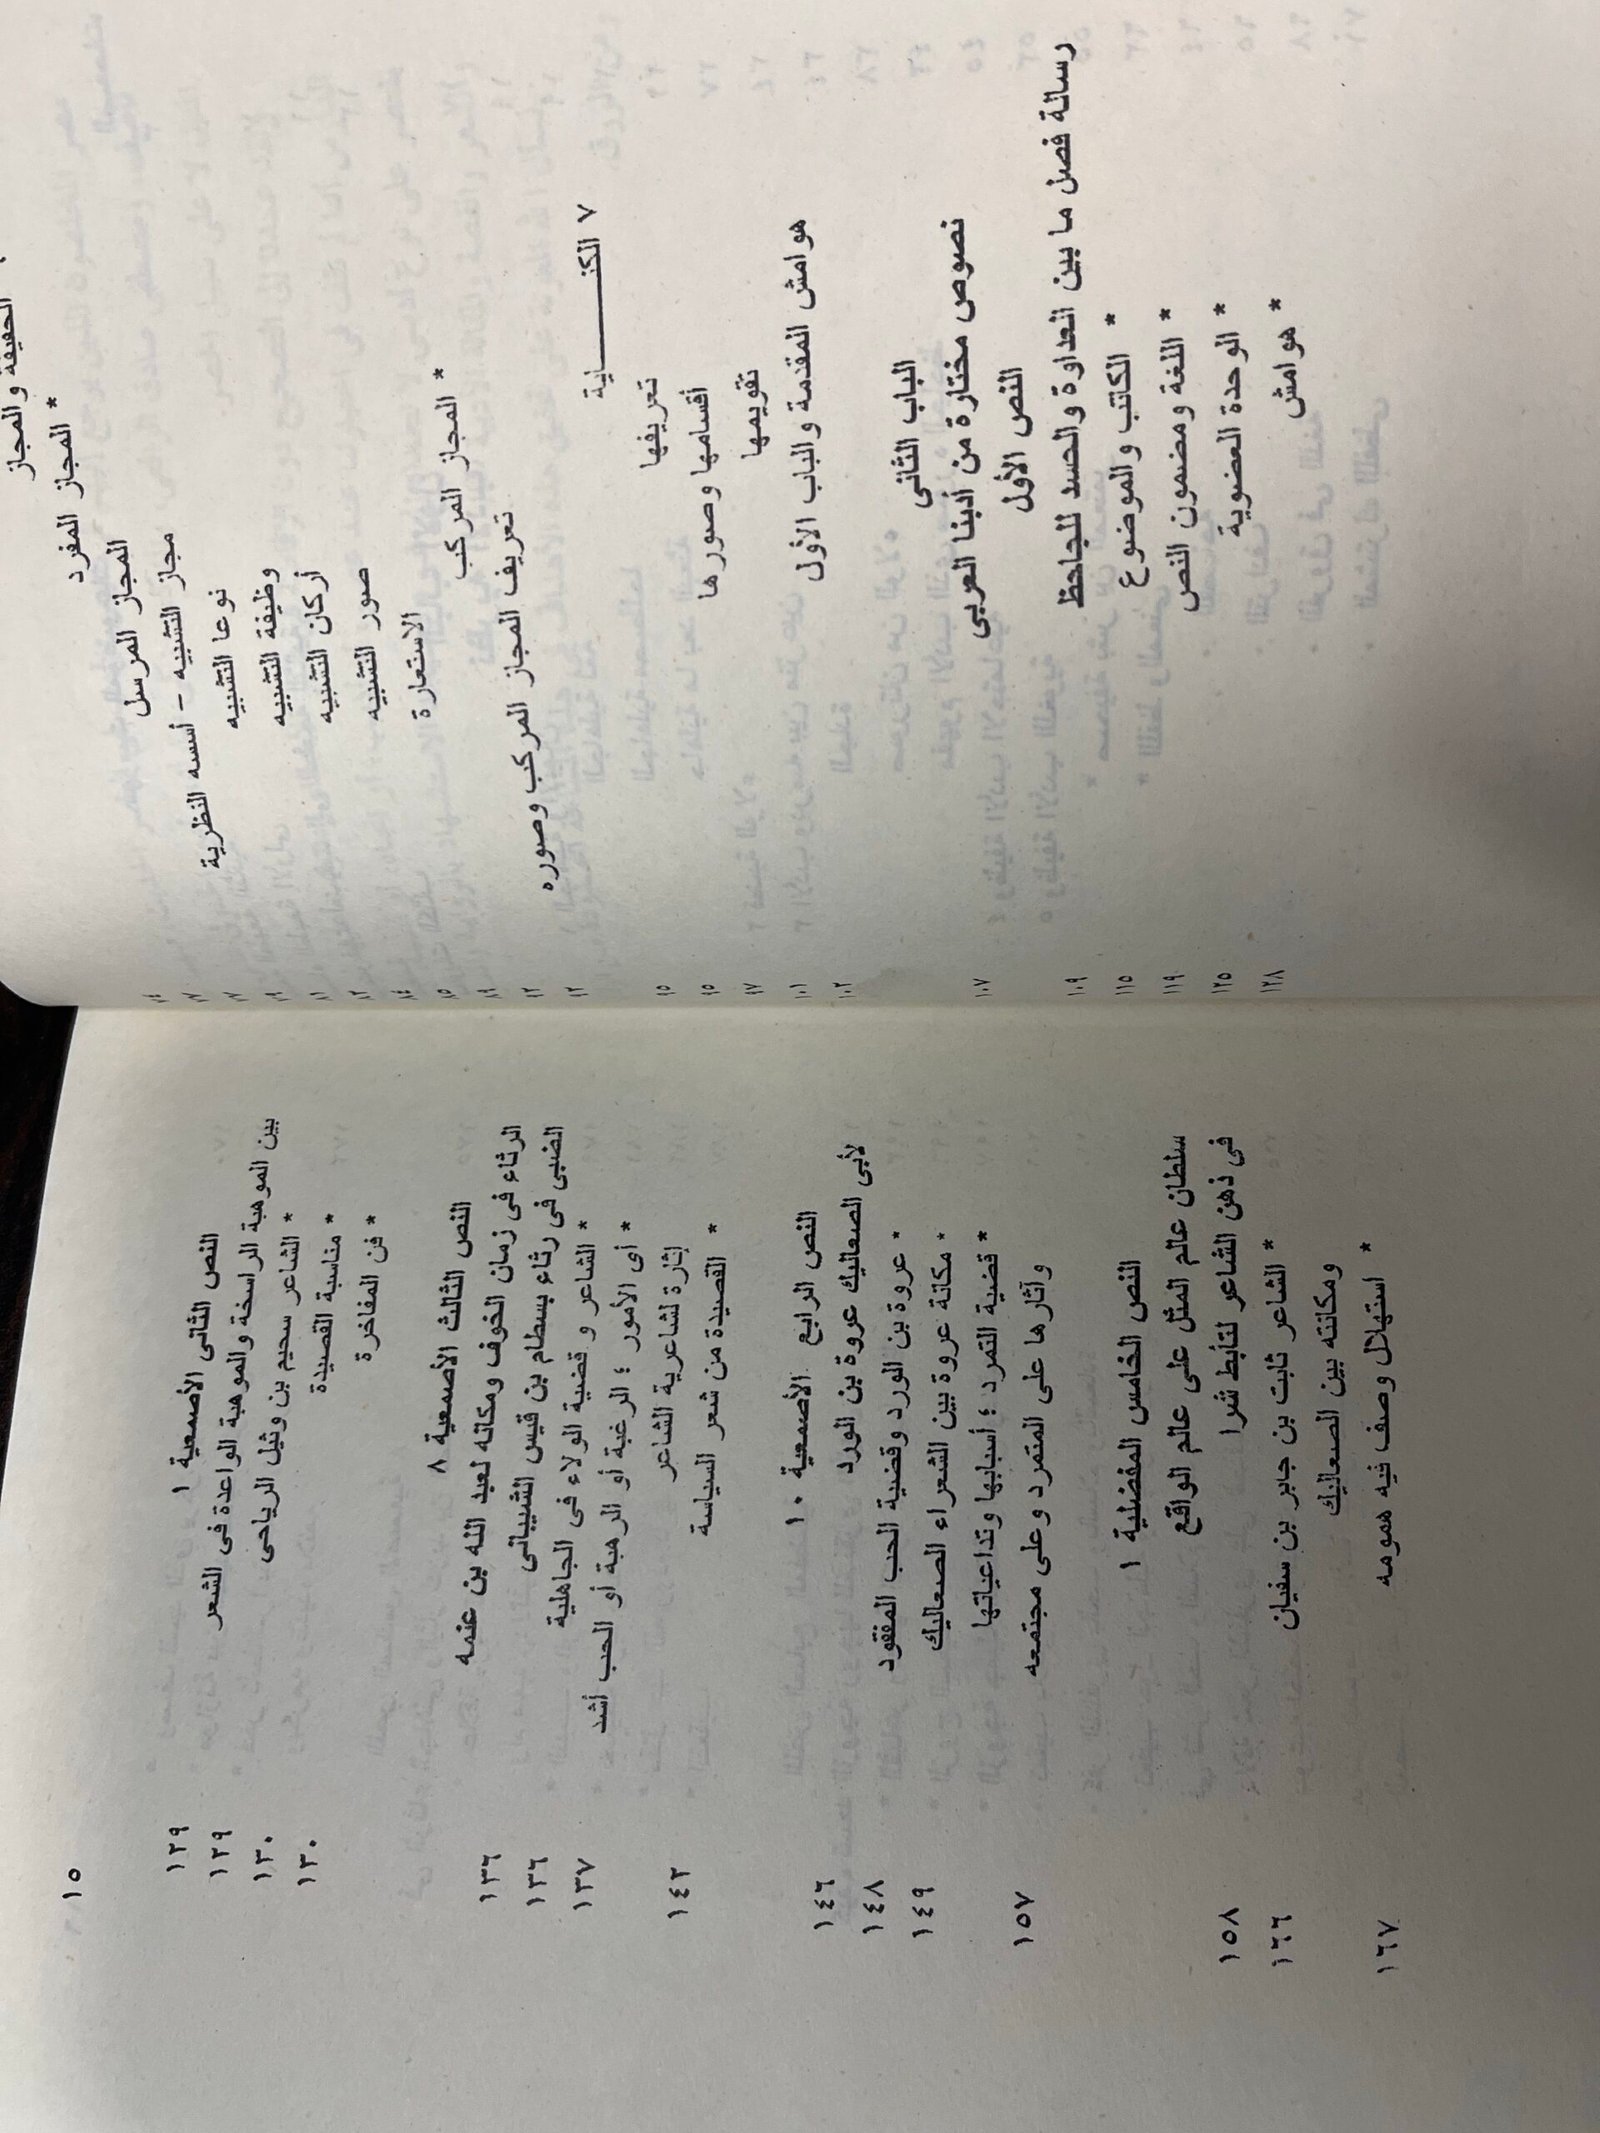 الحقيقة والمجاز
* المجاز المفرد
المجاز المرسل
مجاز التشبيه - أسسه النظرية
نوعا التشبيه
وظيفة التشبيه
أركان التشبيه
صور التشبيه
الاستعارة
* المجاز المركب
تعريف المجاز المركب وصوره
٧ الكنـــــــاية
تعريفها
أقسامها وصورها
تقويمها
هوامش المقدمة والباب الأول
الباب الثانى
نصوص مختارة من أدبنا العربى
النص الأول
رسالة فصل ما بين العداوة والحسد للجاحظ
* الكاتب والموضوع
* اللغة ومضمون النص
* الوحدة العضوية
* هوامش
٩٥
٩٥
٩٧
١٠١
١٠٢
١٠٧
١٠٩
١١٥
١١٩
١٢٥
١٢٨
١٥
النص الثانى الأصمعية ١ ١٢٩
بين الموهبة الراسخة والموهبة الواعدة فى الشعر ١٢٩
* الشاعر سحيم بن وثيل الرياحى ١٣٠
* مناسبة القصيدة ١٣٠
* فن المفاخرة
النص الثالث الأصمعية ٨
الرثاء فى زمان الخوف ومكانه لعبد الله بن عنمه ١٣٦
الضبى فى رثاء بسطام بن قيس الشيبانى ١٣٦
* الشاعر وقضية الولاء فى الجاهلية ١٣٧
* أى الأمور ؛ الرغبة أو الرهبة أو الحب أشد
إثارة لشاعرية الشاعر ١٤٢
* القصيدة من شعر السياسة
النص الرابع الأصمعية ١٠
لأبى الصعاليك عروة بن الورد ١٤٦
* عروة بن الورد وقضية الحب المفقود ١٤٨
* مكانة عروة بين الشعراء الصعاليك ١٤٩
* قضية التمرد ؛ أسبابها وتداعياتها
وآثارها على المتمرد وعلى مجتمعه ١٥٧
النص الخامس المفضلية ١
سلطان عالم المثل على عالم الواقع
فى ذهن الشاعر لتأبط شرا ١٥٨
* الشاعر ثابت بن جابر بن سفيان ١٦٦
ومكانته بين الصعاليك
* استهلال وصف فيه همومه ١٦٧